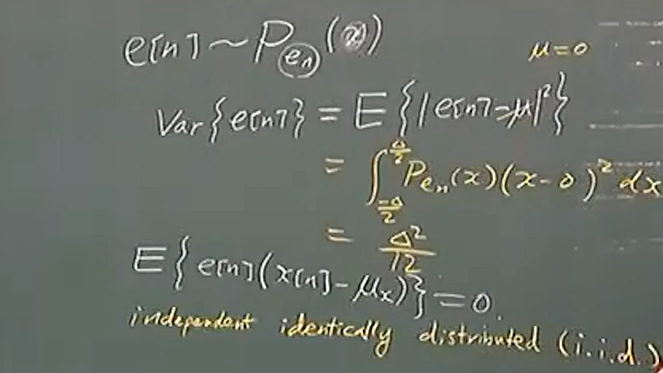 e[n] ~ P_{e_n}(x)
μ=0
Var{e[n]} = E{|e[n]-μ|²}
= ∫_{-Δ/2}^{Δ/2} P_{e_n}(x)(x-0)² dx
= Δ²/12
E{e[n](x[n]-μ_x)} = 0.
independent identically distributed (i.i.d.)